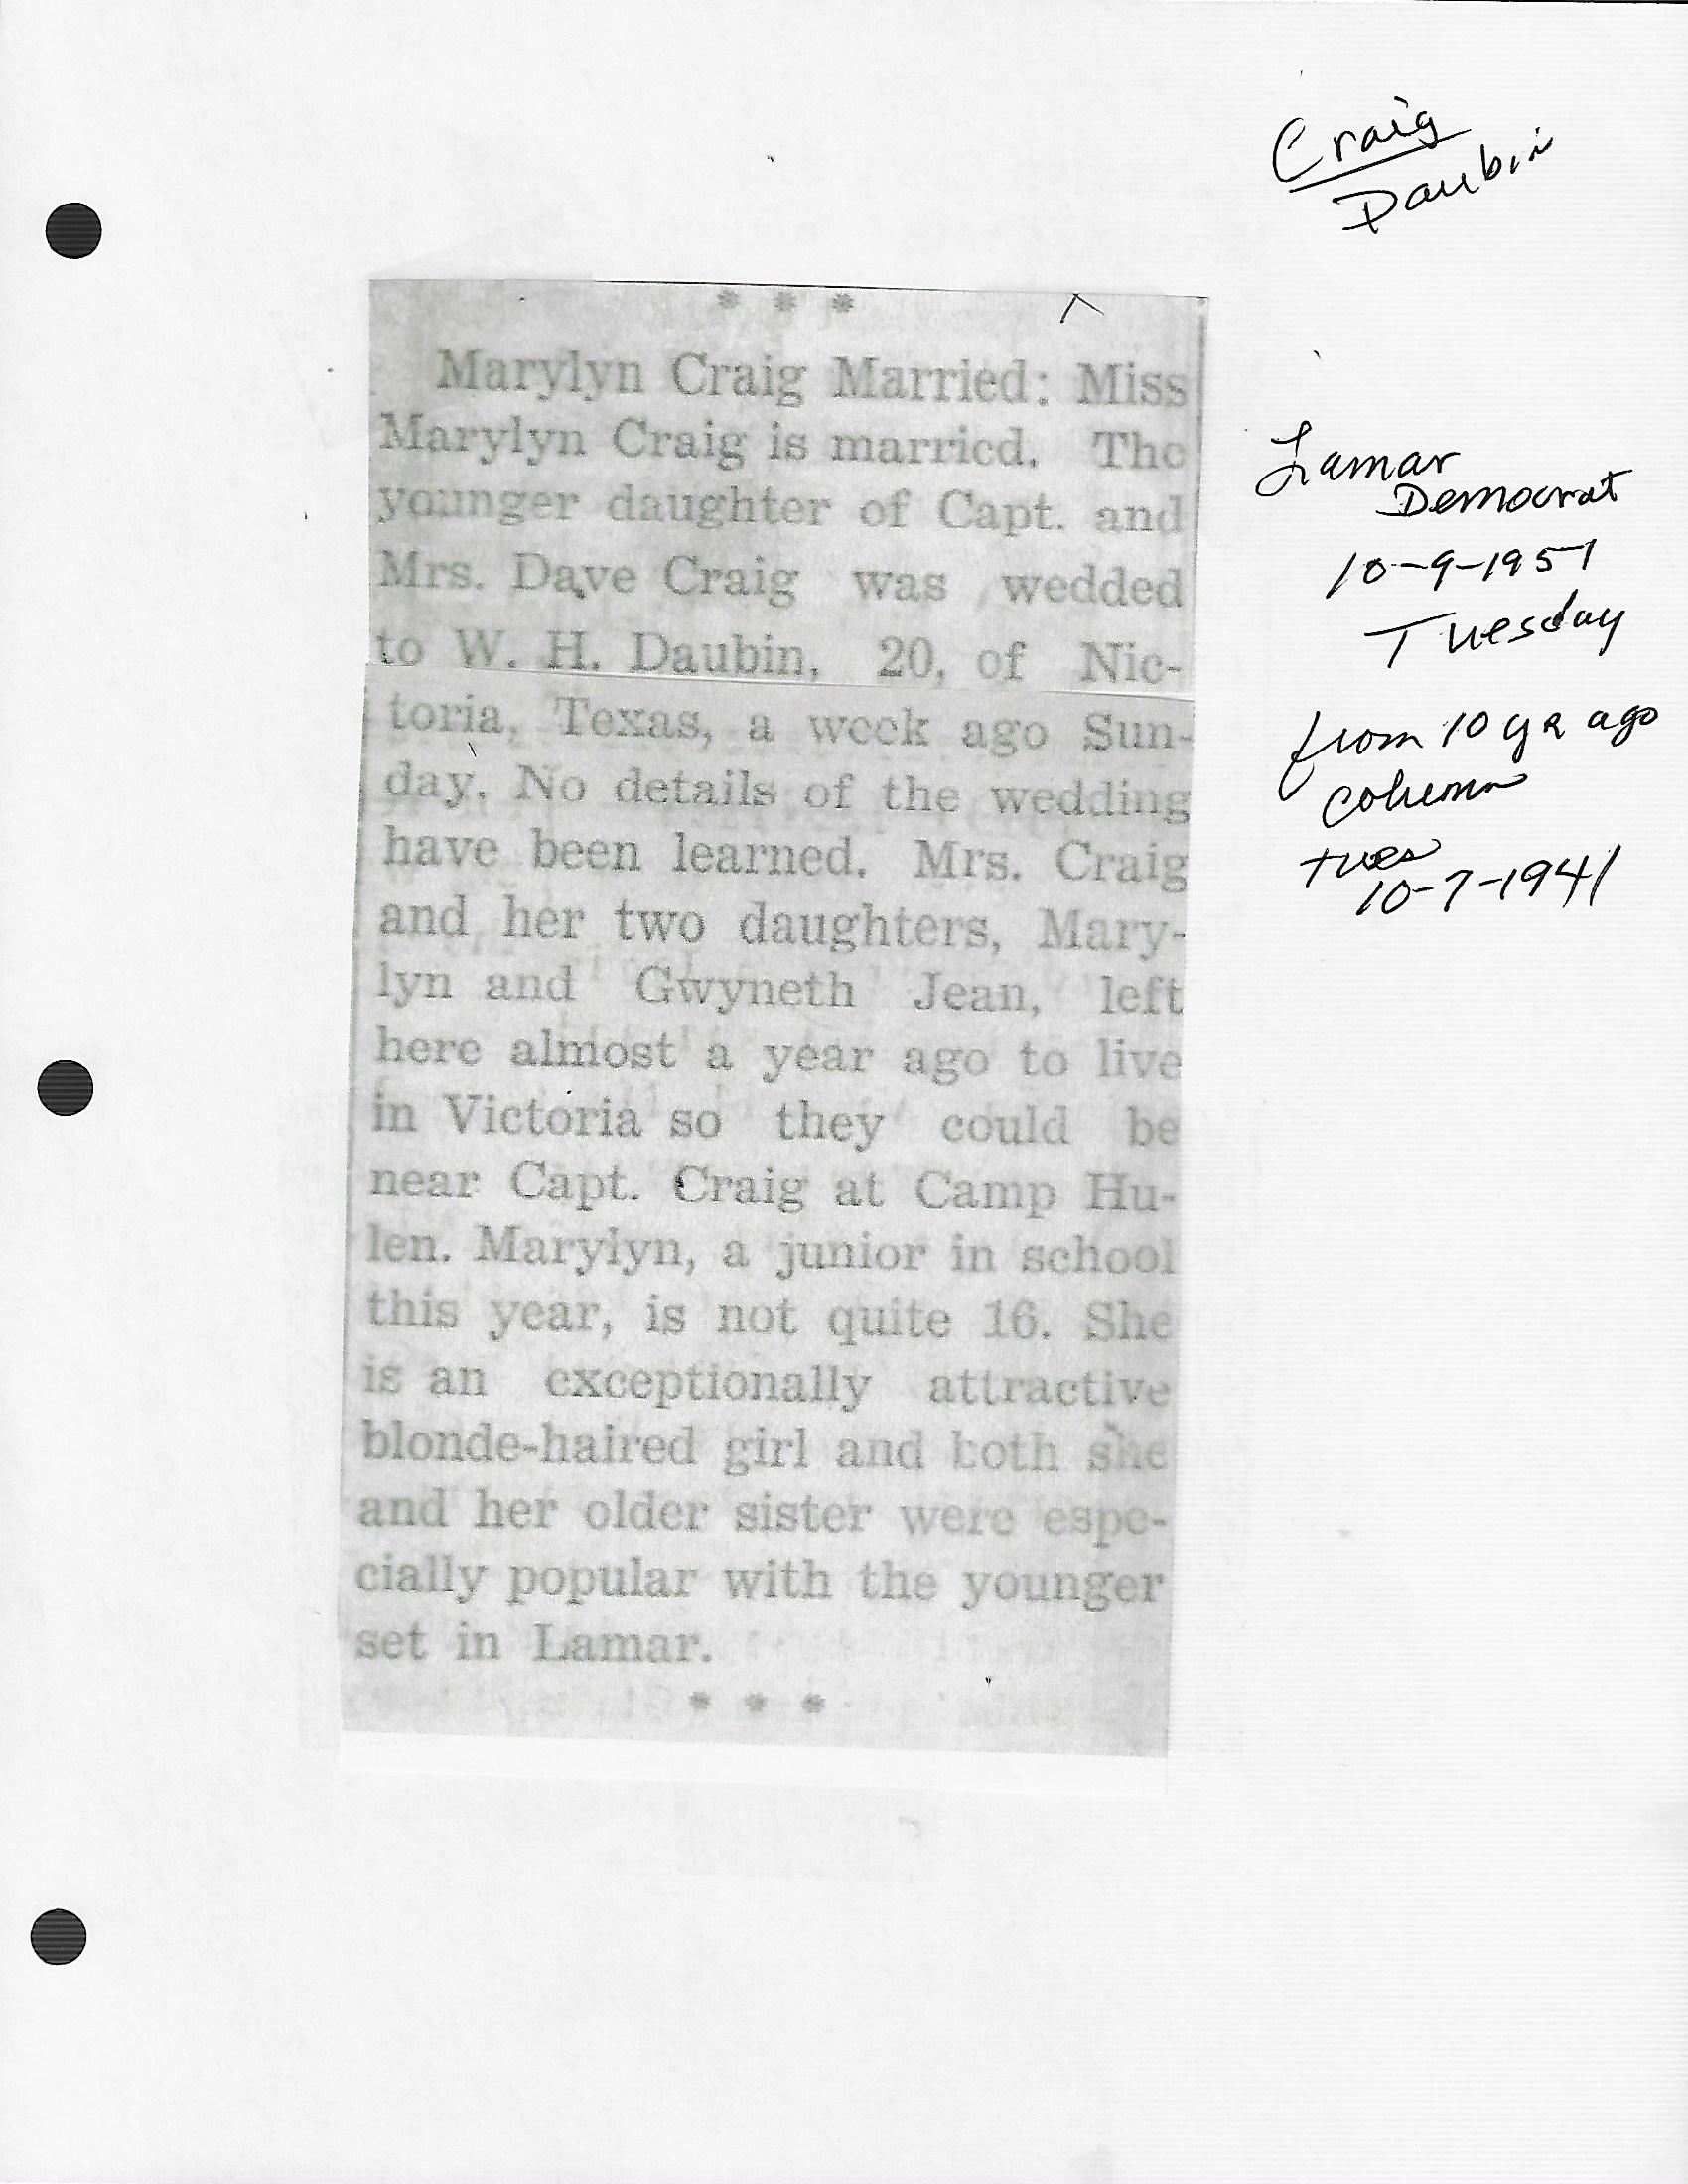 Craig
Daubin
* * *
Marylyn Craig Married: Miss
Marylyn Craig is married. The
younger daughter of Capt. and
Mrs. Dave Craig was wedded
to W. H. Daubin, 20, of Nic-
toria, Texas, a week ago Sun-
day. No details of the wedding
have been learned. Mrs. Craig
and her two daughters, Mary-
lyn and Gwyneth Jean, left
here almost a year ago to live
in Victoria so they could be
near Capt. Craig at Camp Hu-
len. Marylyn, a junior in school
this year, is not quite 16. She
is an exceptionally attractive
blonde-haired girl and both she
and her older sister were espe-
cially popular with the younger
set in Lamar.
* * *
Lamar
Democrat
10-9-1951
Tuesday
from 10 yr ago
column
tues
10-7-1941